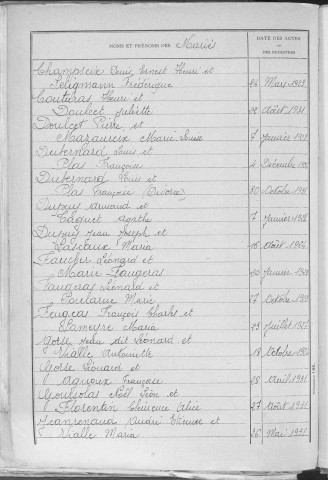 NOMS ET PRÉNOMS DES Mariés
DATE DES ACTES
OU
DES REGISTRES
Champseix Louis Ernest Henri et
Seligmann Frédérique Mars
Couturas Henri et
Doulcet Juliette Août 1931
Doulcet Pierre et
Mazaureix Marie Louise 7 Janvier
Dubernard Louis et
Plas Françoise Décembre
Dubernard Louis et
Plas Françoise (Divorce) Octobre
Dupuy Armand et
Caquet Agathe 7 Janvier
Dupuy Jean Joseph et
Maria 16 Août
Faucher Léonard et
Marie Faugeras 30 Janvier
Faugeras Léonard et
Marie 27 Octobre
Feugeas François Charles et
Lameyre Maria 23 Juillet
Gorse Jean dit Léonard et
Vialle Antoinette Octobre
Gorse Léonard et
Françoise 25 Avril 1931
Goutsolas Noël Léon et
Florentin Clémence Alice 27 Août 1931
Jeanrenaud André Etienne et
Vialle Maria 26 Mai 1931